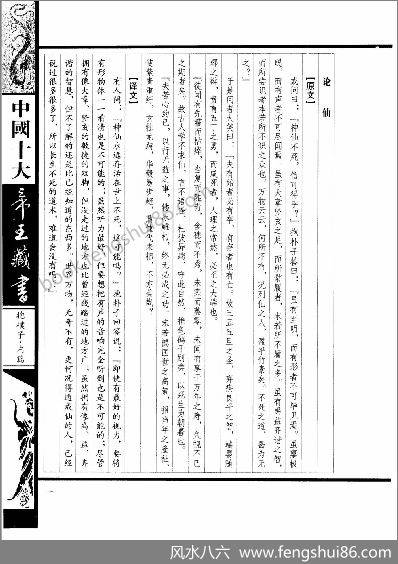 论 仙
【原文】
或问曰："神仙不死，信可得乎？"抱朴子答曰："虽有至明，而有形者不可毕见焉。虽禀极
聪，而有声者不可尽闻焉。虽有大章竖亥之足，而所常履者，未若所不履之多。虽有禹益齐谐之智，
而所尝识者未若所不识之众也。万物云云，何所不有，况列仙之人，盈乎竹素矣。不死之道，曷为无
之？"
于是问者大笑曰："夫有始者必有卒，有存者必有亡。故三五丘旦之圣，弃疾良平之智，端婴随
郦之辩，贲育五丁之勇，而咸死者，人理之常然，必至之大端也。
"徒闻有先霜而枯瘁，当夏而凋青，含穗而不秀，未实而萎零，未闻有享于万年之寿，久视不已
之期者矣。故古人学不求仙，言不语怪，杜彼异端，守此自然，推龟鹤于别类，以死生为朝暮也。
"夫苦心约己，以行无益之事，镂冰雕朽，终无必成之功。未若摅匡世之高策，招当年之隆祉，
使紫青重纡，玄牡龙跱，华毂易步趋，鼎餗代耒耜，不亦美哉？
【译文】
有人问："神仙永远活在世上不死，这可能吗？"抱朴子回答说："即使有最好的视力，要将
有形物体一一看清也是不可能的；虽然听力极好，但要想把有声的音响完全听到也是不可能的；尽管
拥有像大章、竖亥的敏捷的双脚，但
谐的智慧，但不了解的还是比已经知道的东西多。世界万物，无奇不有，更何况得道成仙的人，已经
说过很多很多了，所以长生不死的道术，难道会没有
中國十大
帝王藏書
抱樸子
www.fengshui86.com
风水八六 www.fengshui86.com